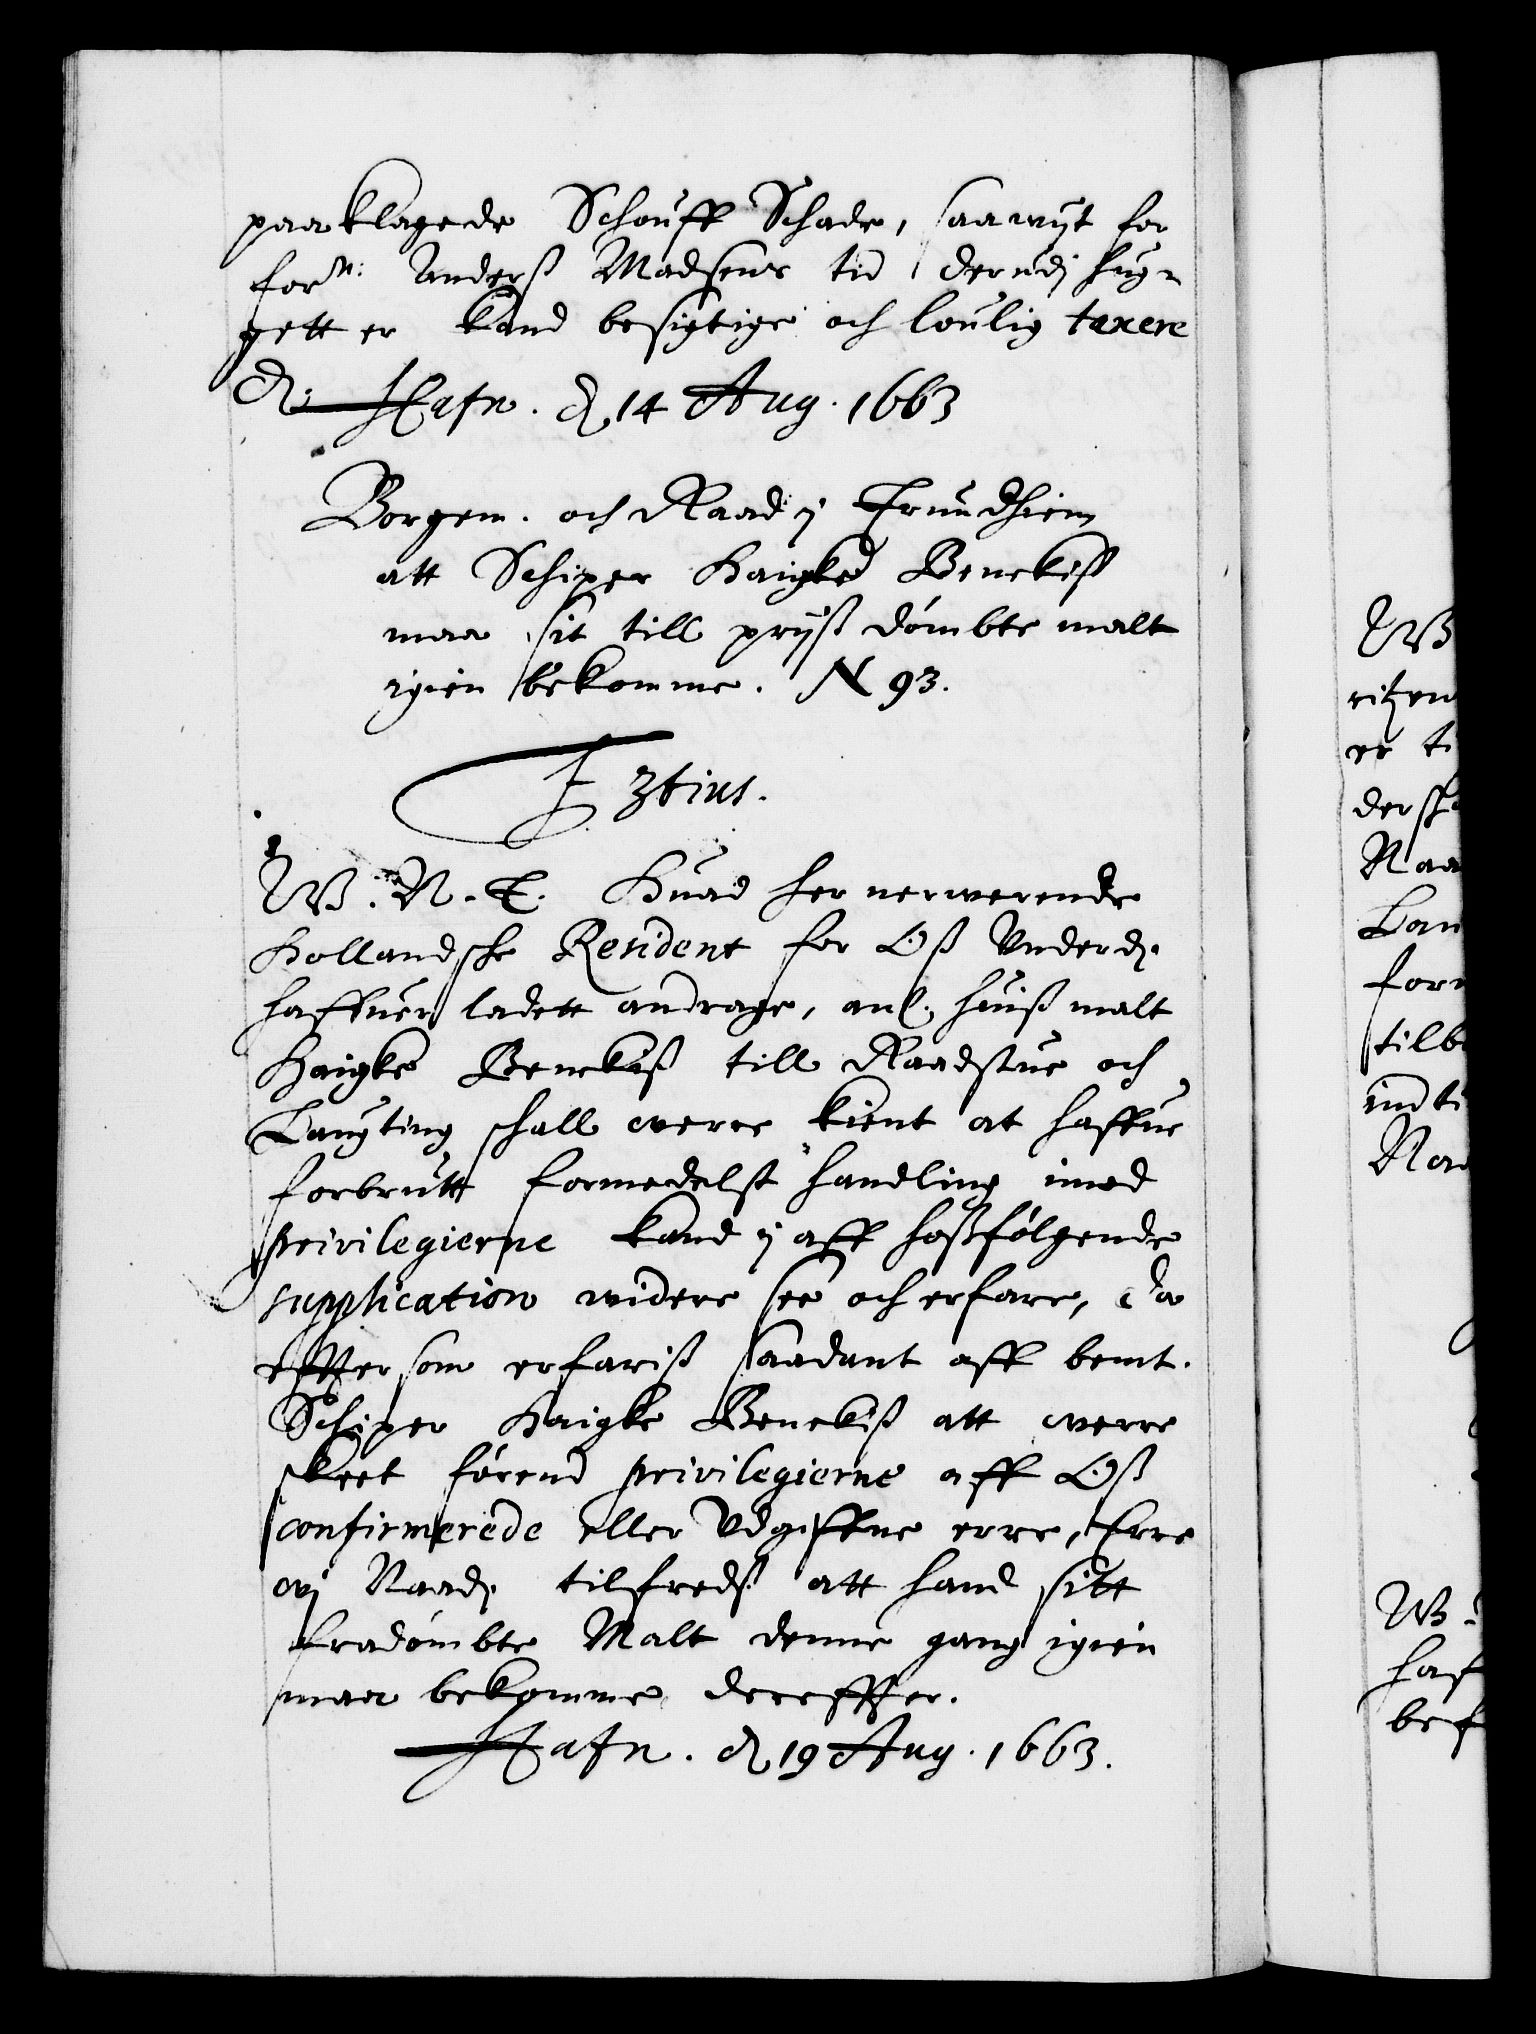 paaklagede Schouff Schade, saawijt for
forⁿ: Anderß Madsens tid derudj hug-
gett er kand besigtige och loulig taxere
D: Hafn. d 14 Aug. 1663
Borgem. och Raad ij Trundhiem
att Schiper Haigke Benckiß
maa sit till prijß dömbte malt
igien bekomme. N 93.
F 3tius.
W. N. T. Huad her nerwerende
Hollandsche Resident for Oß Underd.
haffuer ladett andrage, anl. huiß malt
Haigke Benckiß till Raadstue och
Laugting schall werre kient at haffue
forbrutt formedelst handling imod
privilegierne kand ij aff hoßfölgende
supplication widere see och erfare, da
effter som erfariß saadant aff bemt.
Schiper Haigke Benckiß att werre
skeet förend privilegierne aff Oß
confirmerede eller Udgiffne erre, Erre
wj Naad. tilfredß att hand sitt
fradömbte Malt denne gang igien
maa bekomme, dereffter.
Hafn. d 19 Aug. 1663.
W
ritzen
er ti
Naa
Lan
forn
tilb
indti
Naa
W.
haf
bef